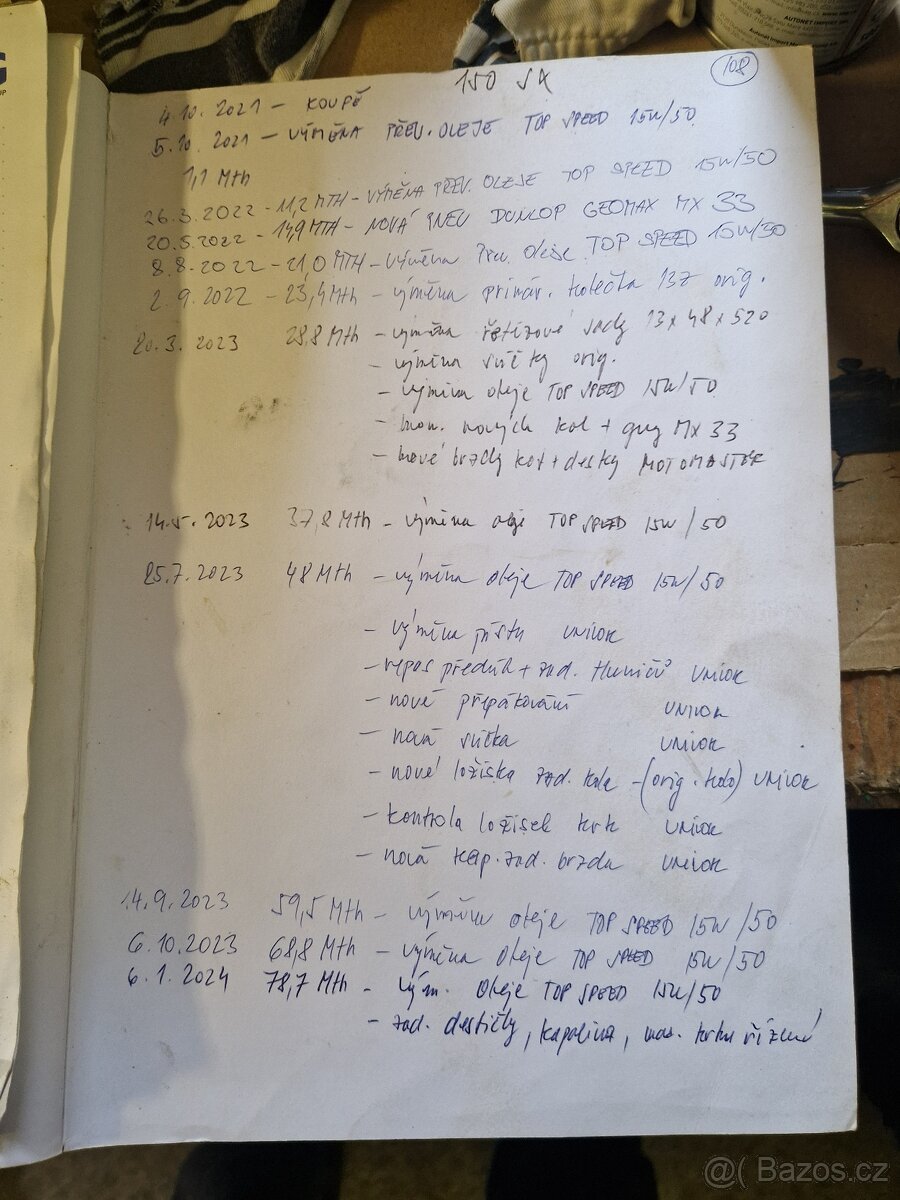 150 SX
108
4.10.2021 – KOUPĚ
5.10.2021 – VÝMĚNA PŘEV. OLEJE TOP SPEED 15W/50
1,1 Mth
26.3.2022 – 11,2 MTH – VÝMĚNA PŘEV. OLEJE TOP SPEED 15W/50
20.5.2022 – 14,9 MTH – NOVÁ PNEU DUNLOP GEOMAX MX 33
8.8.2022 – 21,0 MTH – výměna Přev. Oleje TOP SPEED 15W/50
2.9.2022 – 23,4 Mth – výměna primár. kolečka 13z orig.
20.3.2023 28,8 Mth – výměna řetězové sady 13 x 48 x 520
– výměna svíčky orig.
– výměna oleje TOP SPEED 15W/50
– mon. nových kol + MX 33
– nové brzdy kot + desky MOTOMASTER
14.5.2023 37,8 Mth – výměna oleje TOP SPEED 15W/50
25.7.2023 48 Mth – výměna oleje TOP SPEED 15W/50
– výměna pístu UNIVOK
– repas předních + zad. tlumičů UNIVOK
– nové přepákování UNIVOK
– nová svíčka UNIVOK
– nové ložiska zad. kola – (orig. kolo) UNIVOK
– kontrola ložisek krk UNIVOK
– nová kap. zad. brzda UNIVOK
14.9.2023 59,5 Mth – výměna oleje TOP SPEED 15W/50
6.10.2023 68,8 Mth – výměna oleje TOP SPEED 15W/50
6.1.2024 78,7 Mth – vým. Oleje TOP SPEED 15W/50
– zad. destičky, kapalina, maz. krku řízení
@( Bazos.cz